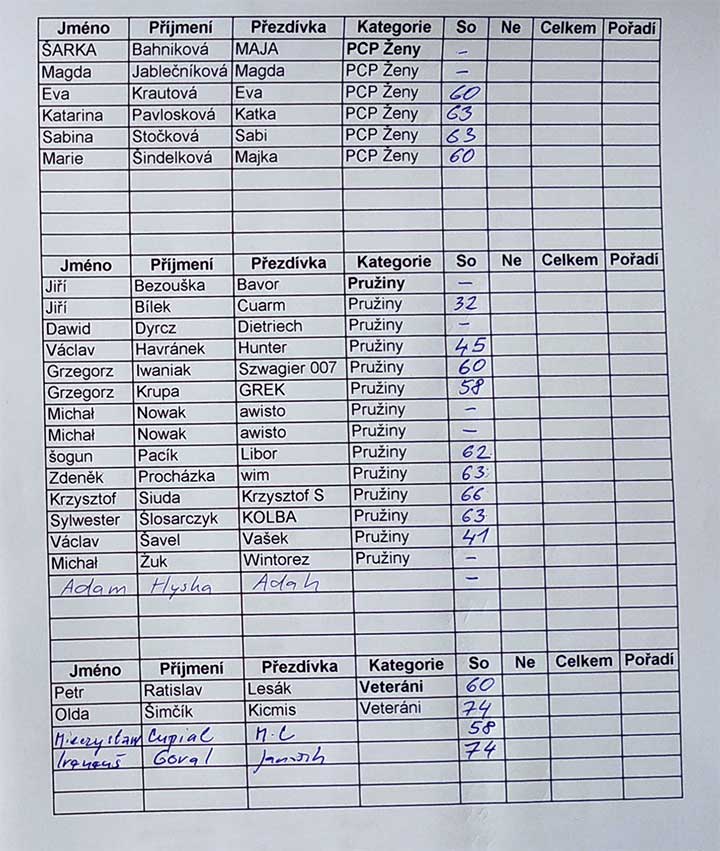 Jméno Příjmení Přezdívka Kategorie So Ne Celkem Pořadí
ŠÁRKA Bahniková MAJA PCP Ženy –
Magda Jablečníková Magda PCP Ženy –
Eva Krautová Eva PCP Ženy 60
Katarina Pavlosková Katka PCP Ženy 63
Sabina Stočková Sabi PCP Ženy 63
Marie Šindelková Majka PCP Ženy 60
Jméno Příjmení Přezdívka Kategorie So Ne Celkem Pořadí
Jiří Bezouška Bavor Pružiny –
Jiří Bílek Cuarm Pružiny 32
Dawid Dyrcz Dietriech Pružiny –
Václav Havránek Hunter Pružiny 45
Grzegorz Iwaniak Szwagier 007 Pružiny 60
Grzegorz Krupa GREK Pružiny 58
Michał Nowak awisto Pružiny –
Michał Nowak awisto Pružiny –
šogun Pacík Libor Pružiny 62
Zdeněk Procházka wim Pružiny 63
Krzysztof Siuda Krzysztof S Pružiny 66
Sylwester Ślosarczyk KOLBA Pružiny 63
Václav Šavel Vašek Pružiny 41
Michał Żuk Wintorez Pružiny –
Adam Hyska Adah –
Jméno Příjmení Přezdívka Kategorie So Ne Celkem Pořadí
Petr Ratislav Lesák Veteráni 60
Olda Šimčík Kicmis Veteráni 74
Mieczysław Cupiał M.C 58
Goral 74